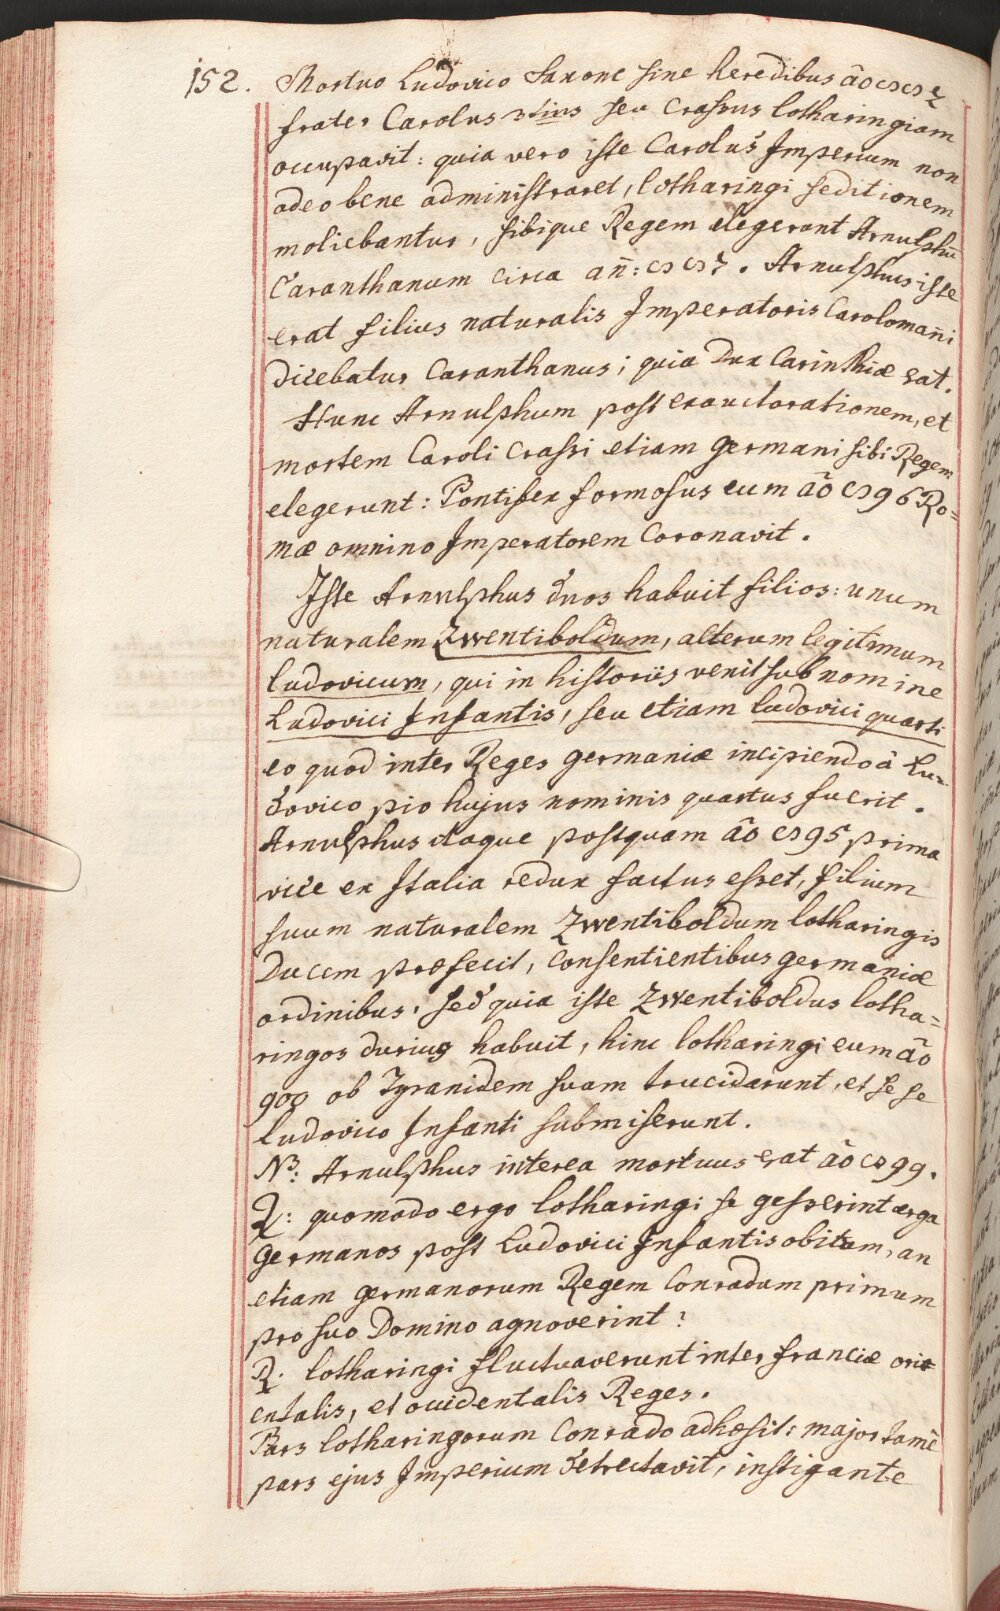 152. Mortuo Ludovico Saxone sine heredibus a͠o 882
frater Carolus 3tius seu Crassus lotharingiam
occupavit: quia vero iste Carolus Imperium non
adeo bene administraret, lotharingi seditionem
moliebantur, sibique Regem elegerant Arnulphu͠
Caranthanum circa an͠: 887. Arnulphus iste
erat filius naturalis Imperatoris Caroloman͠i
dicebatur Caranthanus; quia Dux Carinthiæ erat.
Hunc Arnulphum post exauctorationem, et
mortem Caroli Crassi etiam Germani sibi Regem
elegerunt: Pontifex formosus eum a͠o 896 Ro=
mæ omnino Imperatorem Coronavit.
Iste Arnulphus duos habuit filios: unum
naturalem Zwentiboldum, alterum legitimum
ludovicum, qui in historiis venit sub nomine
Ludovici Infantis, seu etiam ludovici quarti
eo quod inter Reges Germaniæ incipiendo â Lu=
dovico pio hujus nominis quartus fuerit.
Arnulphus itaque postquam a͠o 895 prima
vice ex Italia redux factus esset, filium
suum naturalem Zwentiboldum lotharingis
Ducem præfecit, Consentientibus germaniæ
ordinibus. sed quia iste Zwentiboldus lotha=
ringos durius habuit, hinc lotharingi eum a͠o
900 ob Tyranidem suam trucidarunt, et se se
Ludovico Infanti submiserunt.
NB: Arnulphus interea mortuus erat a͠o 899.
Q: quomodo ergo lotharingi se gesserint ærga
Germanos post Ludovici Infantis obitum, an
etiam germanorum Regem Conradum primum
pro suo Domino agnoverint?
R: lotharingi fluctuaverunt inter franciæ ori
entalis, et occidentalis Reges.
Pars lotharingorum Conrado adhæsit: major tame͠
pars ejus Imperium detrectavit, instigante